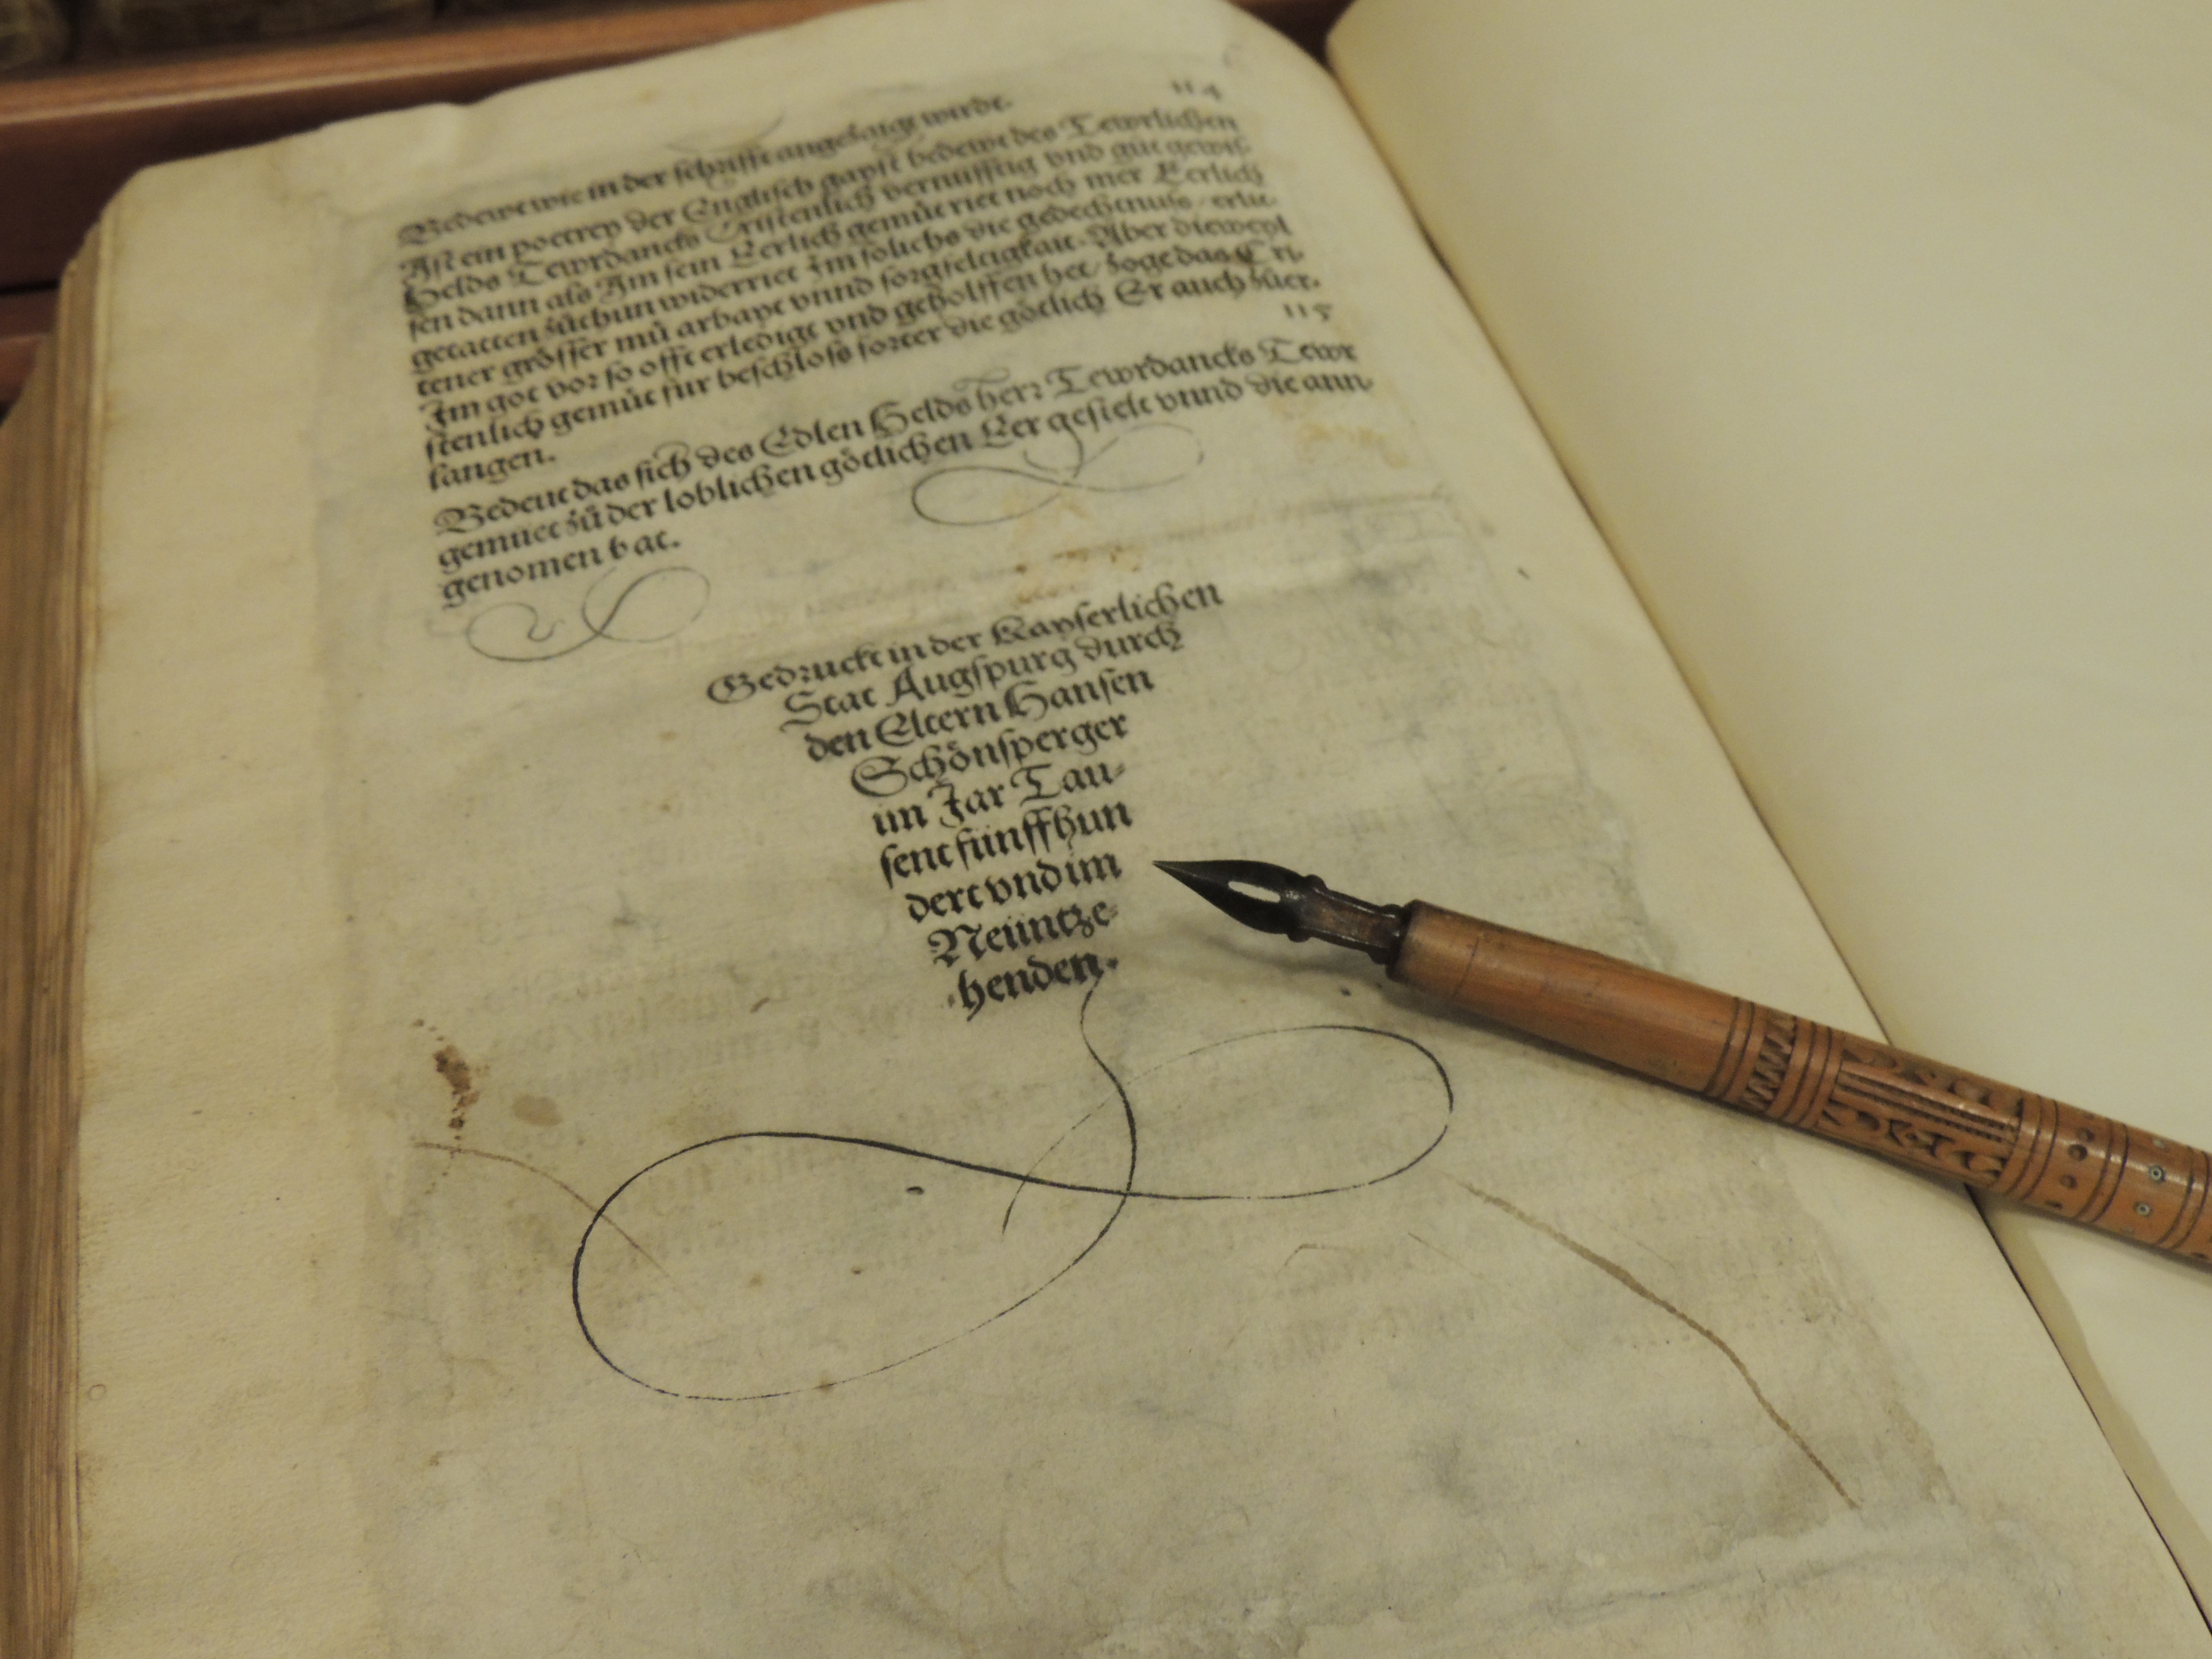 114
Bedewt wie in der schrifft angezaigt wirdt.
Ist ein poetrey der Englisch gayst bedewt des Tewrlichen
Helds Tewrdancks Cristenlich vernufftig vnd güt gewiſ-
ſen dann als Im ſein Eerlich gemüt riet noch mer Eerlich
getatten züthun widerriet Im ſolichs die gedechtnuſs / erlit-
tener gröſſer mü arbayt vnnd ſorgfeltigkait. Aber dieweyl
Im got vor ſo offt erledigt vnd geholffen het / zoge das Cri-
ſtenlich gemüt für beſchloſs ſorter die götlich Er auch züer-
langen.
115
Bedeut das ſich des Edlen Helds herr Tewrdancks Tewr
gemuet zů der loblichen götlichen Eer geſielt vnnd die ann-
genomen hat.
Gedruckt in der Kayſerlichen
Stat Augſpurg durch
den Eltern Hanſen
Schönſperger
im Jar Tau-
ſent fünffhun
dert vnd im
Neüntze-
henden.